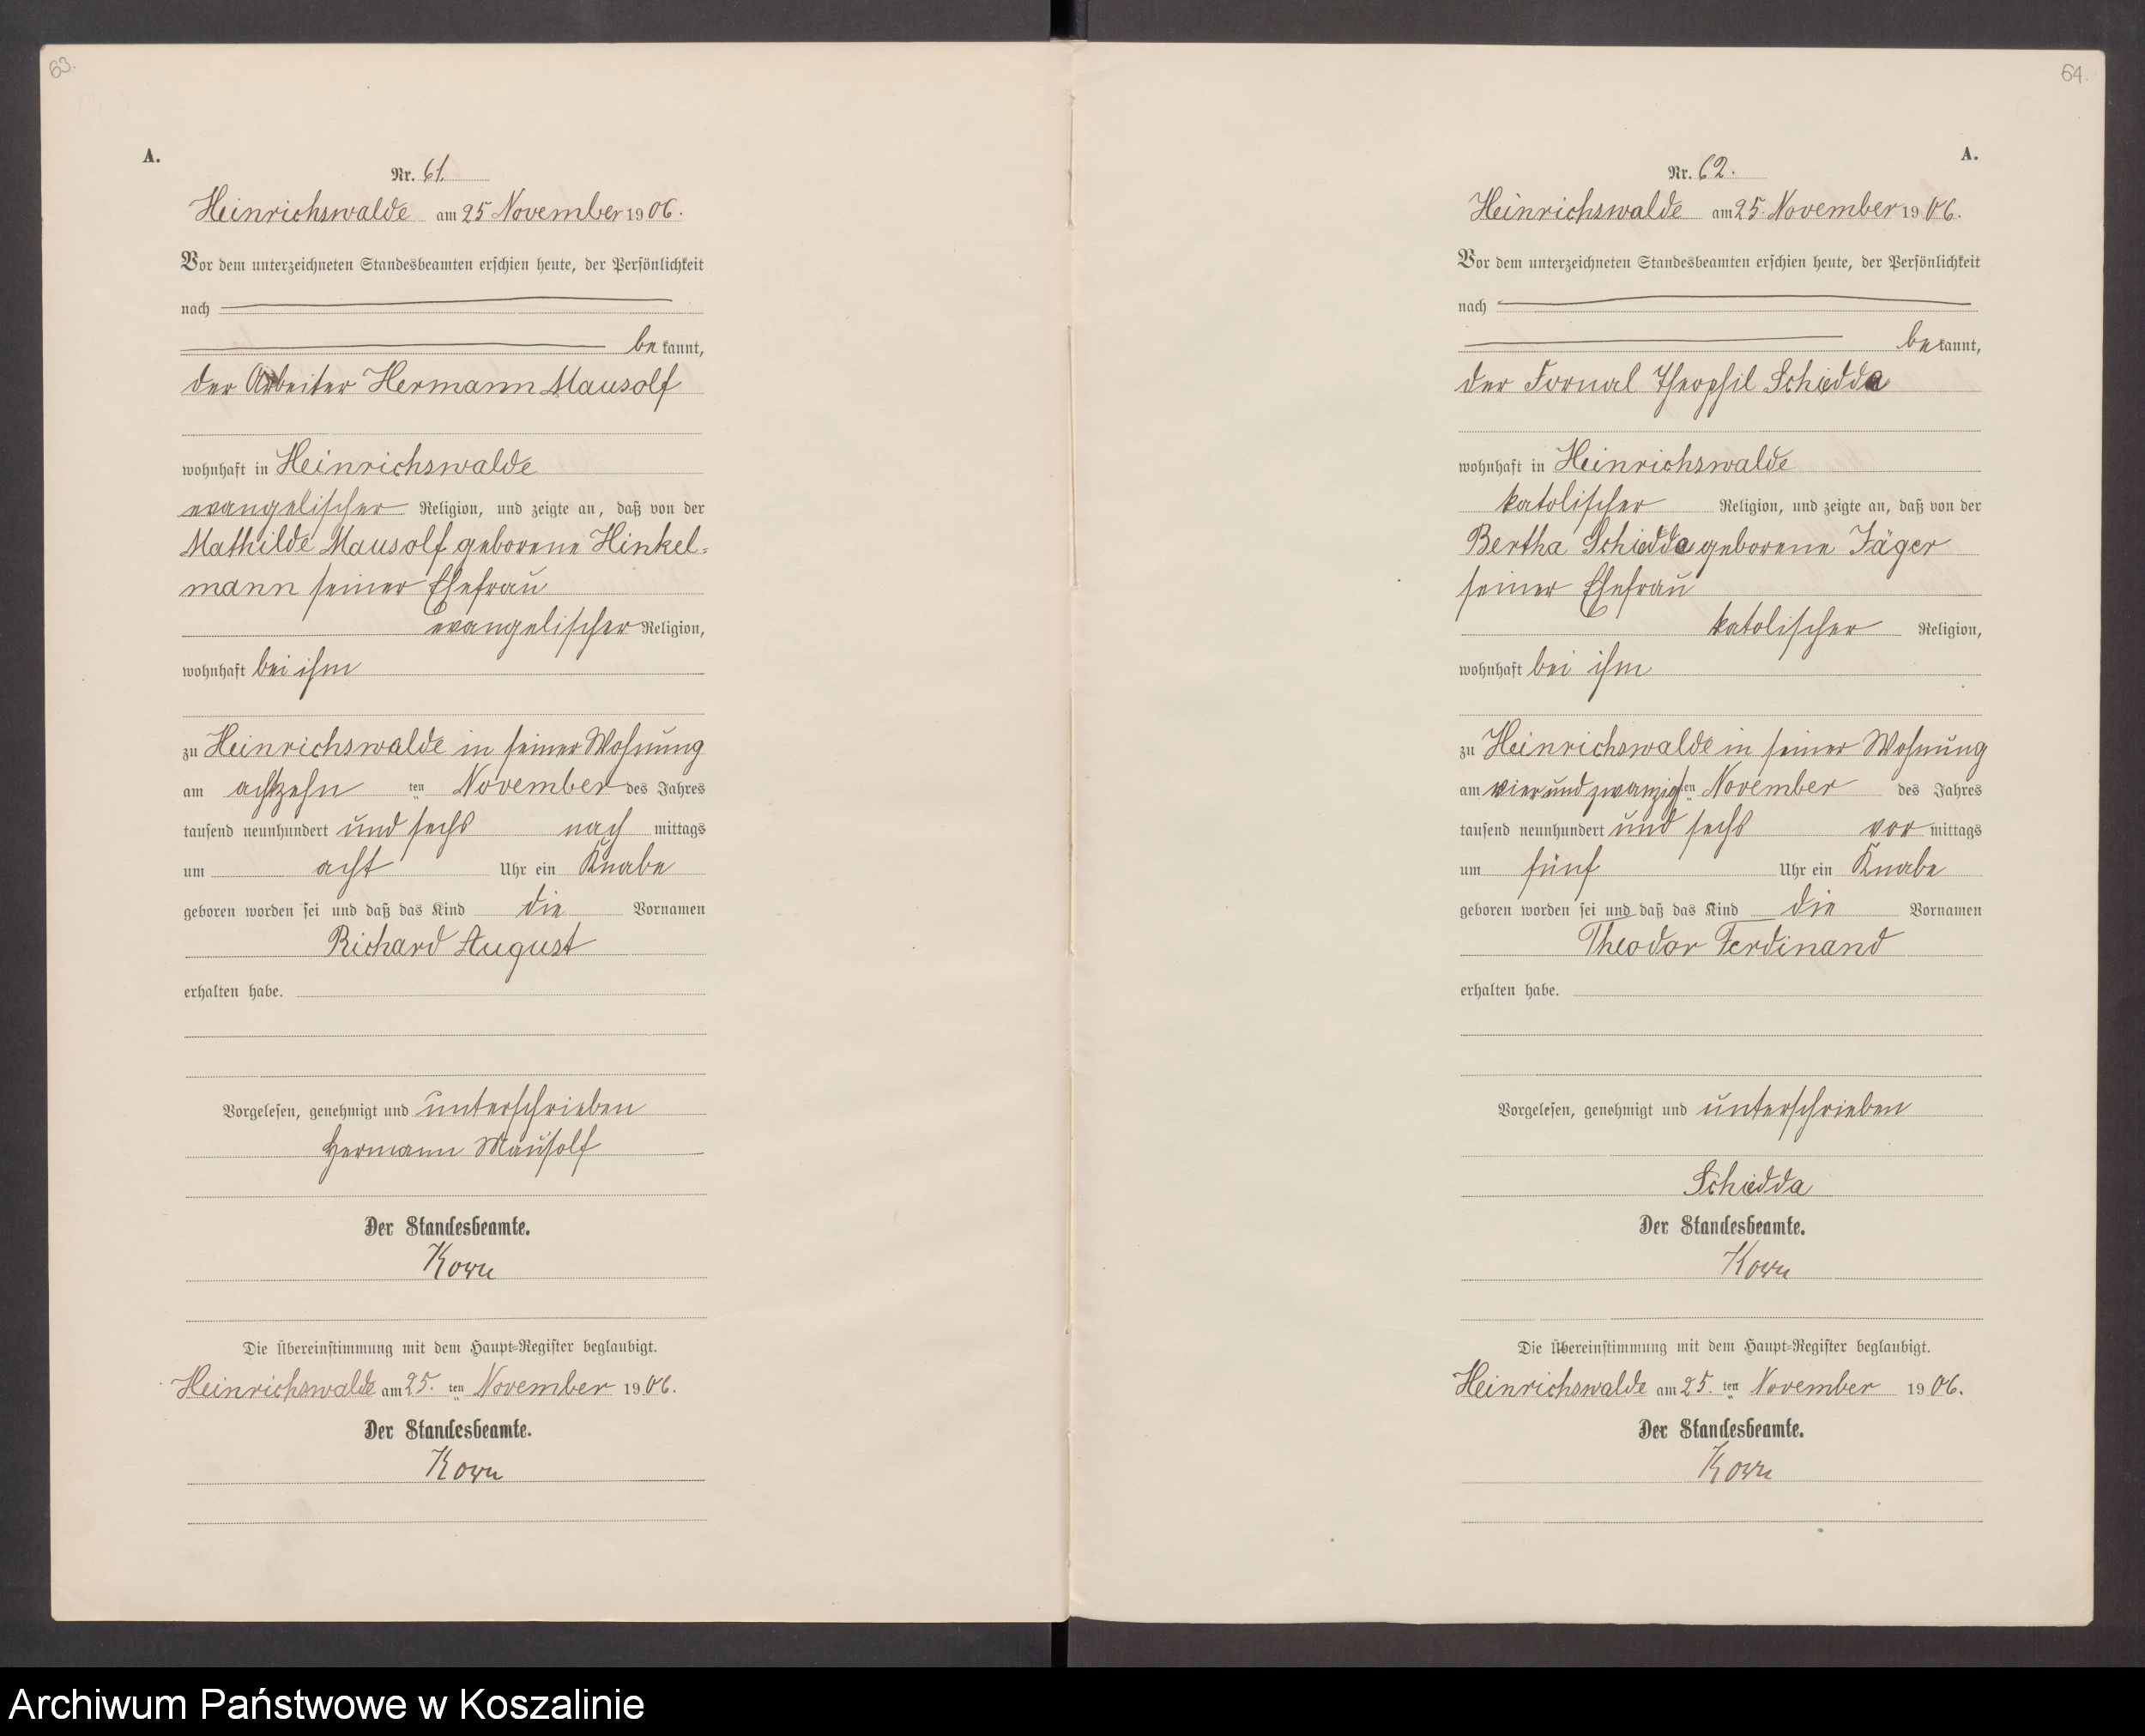 63.
A.
Nr. 61.
Heinrichswalde am 25 November 1906.
Vor dem unterzeichneten Standesbeamten erschien heute, der Persönlichkeit
nach
be kannt,
der Arbeiter Hermann Mausolf
wohnhaft in Heinrichswalde
evangelischer Religion, und zeigte an, daß von der
Mathilde Mausolf geborene Hinkel-
mann seiner Ehefrau
evangelischer Religion,
wohnhaft bei ihm
zu Heinrichswalde in seiner Wohnung
am achtzehn ten November des Jahres
tausend neunhundert und sechs nach mittags
um acht Uhr ein Knabe
geboren worden sei und daß das Kind die Vornamen
Richard August
erhalten habe.
Vorgelesen, genehmigt und unterschrieben
Hermann Mausolf
Der Standesbeamte.
Korn
Die Übereinstimmung mit dem Haupt-Register beglaubigt.
Heinrichswalde am 25. ten November 1906.
Der Standesbeamte.
Korn
64.
A.
Nr. 62.
Heinrichswalde am 25. November 1906.
Vor dem unterzeichneten Standesbeamten erschien heute, der Persönlichkeit
nach
be kannt,
der Fornal Theophil Schiedda
wohnhaft in Heinrichswalde
katolischer Religion, und zeigte an, daß von der
Bertha Schiedda geborene Jäger
seiner Ehefrau
katolischer Religion,
wohnhaft bei ihm
zu Heinrichswalde in seiner Wohnung
am vierundzwanzigsten November des Jahres
tausend neunhundert und sechs vor mittags
um fünf Uhr ein Knabe
geboren worden sei und daß das Kind die Vornamen
Theodor Ferdinand
erhalten habe.
Vorgelesen, genehmigt und unterschrieben
Schiedda
Der Standesbeamte.
Korn
Die Übereinstimmung mit dem Haupt-Register beglaubigt.
Heinrichswalde am 25. ten November 1906.
Der Standesbeamte.
Korn
Archiwum Państwowe w Koszalinie